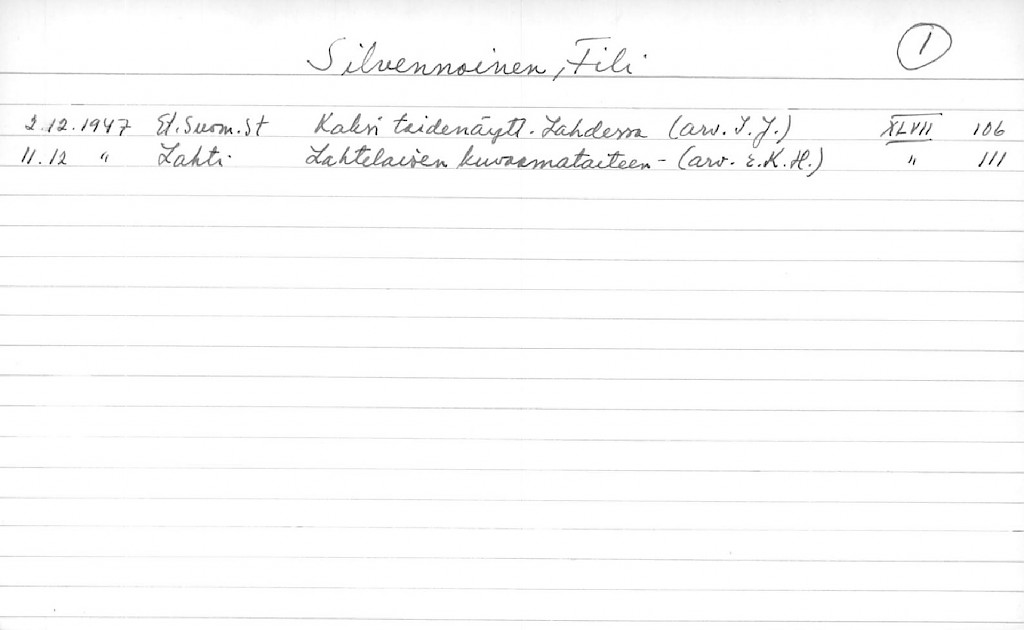 Silvennoinen, Fili
1
2.12.1947 Et.Suom.St Kaksi taidenäytt. Lahdessa (arv. I.J.) XLVII 106
11.12 " Lahti Lahtelaisen kuvaamataiteen - (arv. E.K.H.) " 111